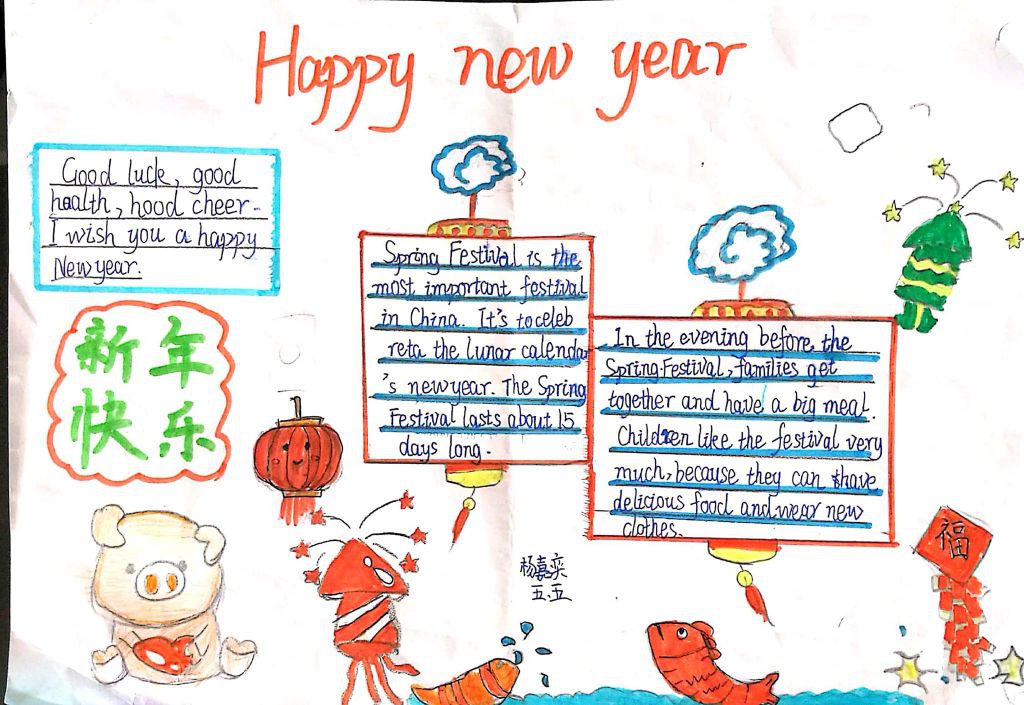 Happy new year
Good luck, good
health, hood cheer.
I wish you a happy
New year.
新年
快乐
Spring Festival is the
most important festival
in China. It's to celeb
reta the lunar calendar
's new year. The Spring
Festival lasts about 15
days long.
In the evening before the
Spring Festival, families get
together and have a big meal.
Children like the festival very
much, because they can have
delicious food and wear new
clothes.
杨嘉奕
五.五
福